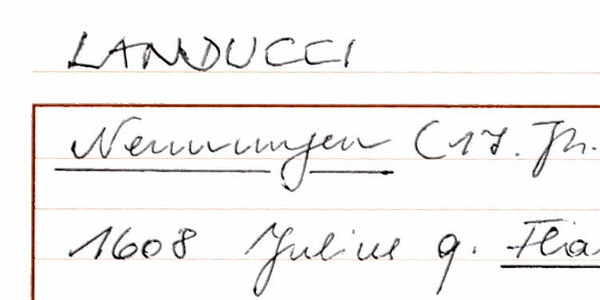 LANDUCCI
Nennungen (17. Jh.
1608 Julius q. Flia